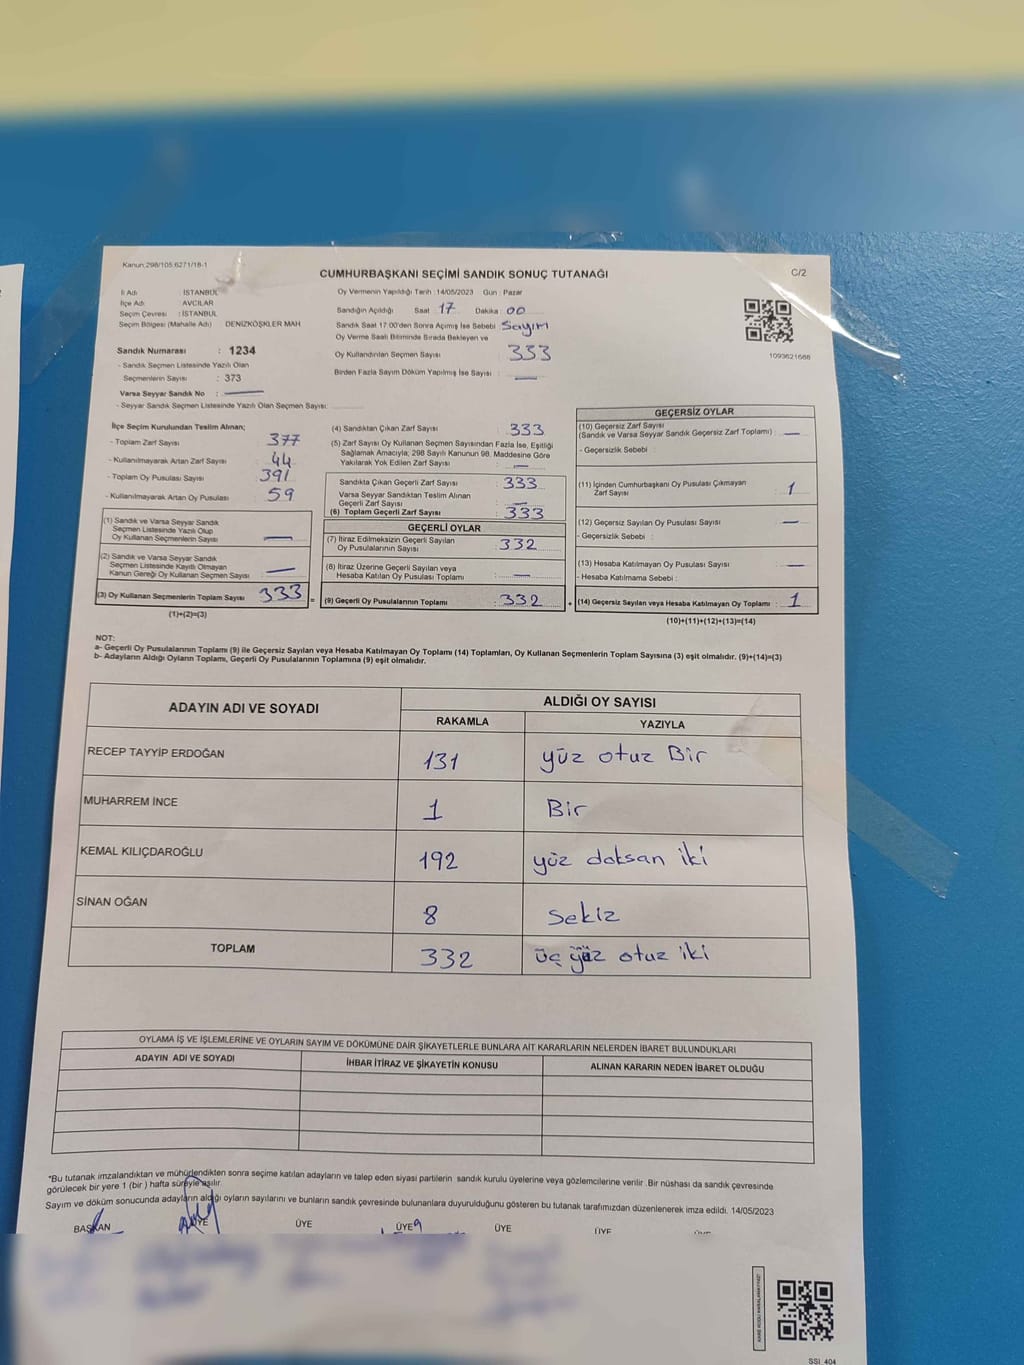 Kanun:298/105;6271/18-1
CUMHURBAŞKANI SEÇİMİ SANDIK SONUÇ TUTANAĞI
C/2
İl Adı : İSTANBUL
İlçe Adı : AVCILAR
Seçim Çevresi : İSTANBUL
Seçim Bölgesi (Mahalle Adı) DENİZKÖŞKLER MAH
Sandık Numarası : 1234
- Sandık Seçmen Listesinde Yazılı Olan
Seçmenlerin Sayısı : 373
Varsa Seyyar Sandık No : —
- Seyyar Sandık Seçmen Listesinde Yazılı Olan Seçmen Sayısı:
Oy Vermenin Yapıldığı Tarih :14/05/2023 Gün : Pazar
Sandığın Açıldığı Saat : 17 Dakika : 00
Sandık Saat 17:00'den Sonra Açımış İse Sebebi : Sayım
Oy Verme Saati Bitiminde Sırada Bekleyen ve
Oy Kullandırılan Seçmen Sayısı : 333
Birden Fazla Sayım Döküm Yapılmış İse Sayısı : —
1093621688
İlçe Seçim Kurulundan Teslim Alınan;
- Toplam Zarf Sayısı : 377
- Kullanılmayarak Artan Zarf Sayısı : 44
- Toplam Oy Pusulası Sayısı : 391
- Kullanılmayarak Artan Oy Pusulası : 59
(1) Sandık ve Varsa Seyyar Sandık
Seçmen Listesinde Yazılı Olup
Oy Kullanan Seçmenlerin Sayısı : —
(2) Sandık ve Varsa Seyyar Sandık
Seçmen Listesinde Kayıtlı Olmayan
Kanun Gereği Oy Kullanan Seçmen Sayısı : —
(3) Oy Kullanan Seçmenlerin Toplam Sayısı : 333 =
(1)+(2)=(3)
(4) Sandıktan Çıkan Zarf Sayısı : 333
(5) Zarf Sayısı Oy Kullanan Seçmen Sayısından Fazla İse, Eşitliği
Sağlamak Amacıyla; 298 Sayılı Kanunun 98. Maddesine Göre
Yakılarak Yok Edilen Zarf Sayısı : —
Sandıkta Çıkan Geçerli Zarf Sayısı : 333
Varsa Seyyar Sandıktan Teslim Alınan
Geçerli Zarf Sayısı : —
(6) Toplam Geçerli Zarf Sayısı : 333
GEÇERLİ OYLAR
(7) İtiraz Edilmeksizin Geçerli Sayılan
Oy Pusulalarının Sayısı : 332
(8) İtiraz Üzerine Geçerli Sayılan veya
Hesaba Katılan Oy Pusulası Toplamı : —
(9) Geçerli Oy Pusulalarının Toplamı : 332 +
GEÇERSİZ OYLAR
(10) Geçersiz Zarf Sayısı
(Sandık ve Varsa Seyyar Sandık Geçersiz Zarf Toplamı) : —
- Geçersizlik Sebebi :
(11) İçinden Cumhurbaşkanı Oy Pusulası Çıkmayan
Zarf Sayısı : 1
(12) Geçersiz Sayılan Oy Pusulası Sayısı : —
- Geçersizlik Sebebi :
(13) Hesaba Katılmayan Oy Pusulası Sayısı : —
- Hesaba Katılmama Sebebi :
(14) Geçersiz Sayılan veya Hesaba Katılmayan Oy Toplamı : 1
(10)+(11)+(12)+(13)=(14)
NOT:
a- Geçerli Oy Pusulalarının Toplamı (9) ile Geçersiz Sayılan veya Hesaba Katılmayan Oy Toplamı (14) Toplamları, Oy Kullanan Seçmenlerin Toplam Sayısına (3) eşit olmalıdır. (9)+(14)=(3)
b- Adayların Aldığı Oyların Toplamı, Geçerli Oy Pusulalarının Toplamına (9) eşit olmalıdır.
ADAYIN ADI VE SOYADI
ALDIĞI OY SAYISI
RAKAMLA YAZIYLA
RECEP TAYYİP ERDOĞAN 131 yüz otuz Bir
MUHARREM İNCE 1 Bir
KEMAL KILIÇDAROĞLU 192 yüz doksan iki
SİNAN OĞAN 8 Sekiz
TOPLAM 332 üç yüz otuz iki
OYLAMA İŞ VE İŞLEMLERİNE VE OYLARIN SAYIM VE DÖKÜMÜNE DAİR ŞİKAYETLERLE BUNLARA AİT KARARLARIN NELERDEN İBARET BULUNDUKLARI
ADAYIN ADI VE SOYADI İHBAR İTİRAZ VE ŞİKAYETİN KONUSU ALINAN KARARIN NEDEN İBARET OLDUĞU
*Bu tutanak imzalandıktan ve mühürlendikten sonra seçime katılan adayların ve talep eden siyasi partilerin sandık kurulu üyelerine veya gözlemcilerine verilir. Bir nüshası da sandık çevresinde
görülecek bir yere 1 (bir ) hafta süreyle asılır.
Sayım ve döküm sonucunda adayların aldığı oyların sayılarını ve bunların sandık çevresinde bulunanlara duyurulduğunu gösteren bu tutanak tarafımızdan düzenlenerek imza edildi. 14/05/2023
BAŞKAN ÜYE ÜYE ÜYE ÜYE ÜYE
SSI_404